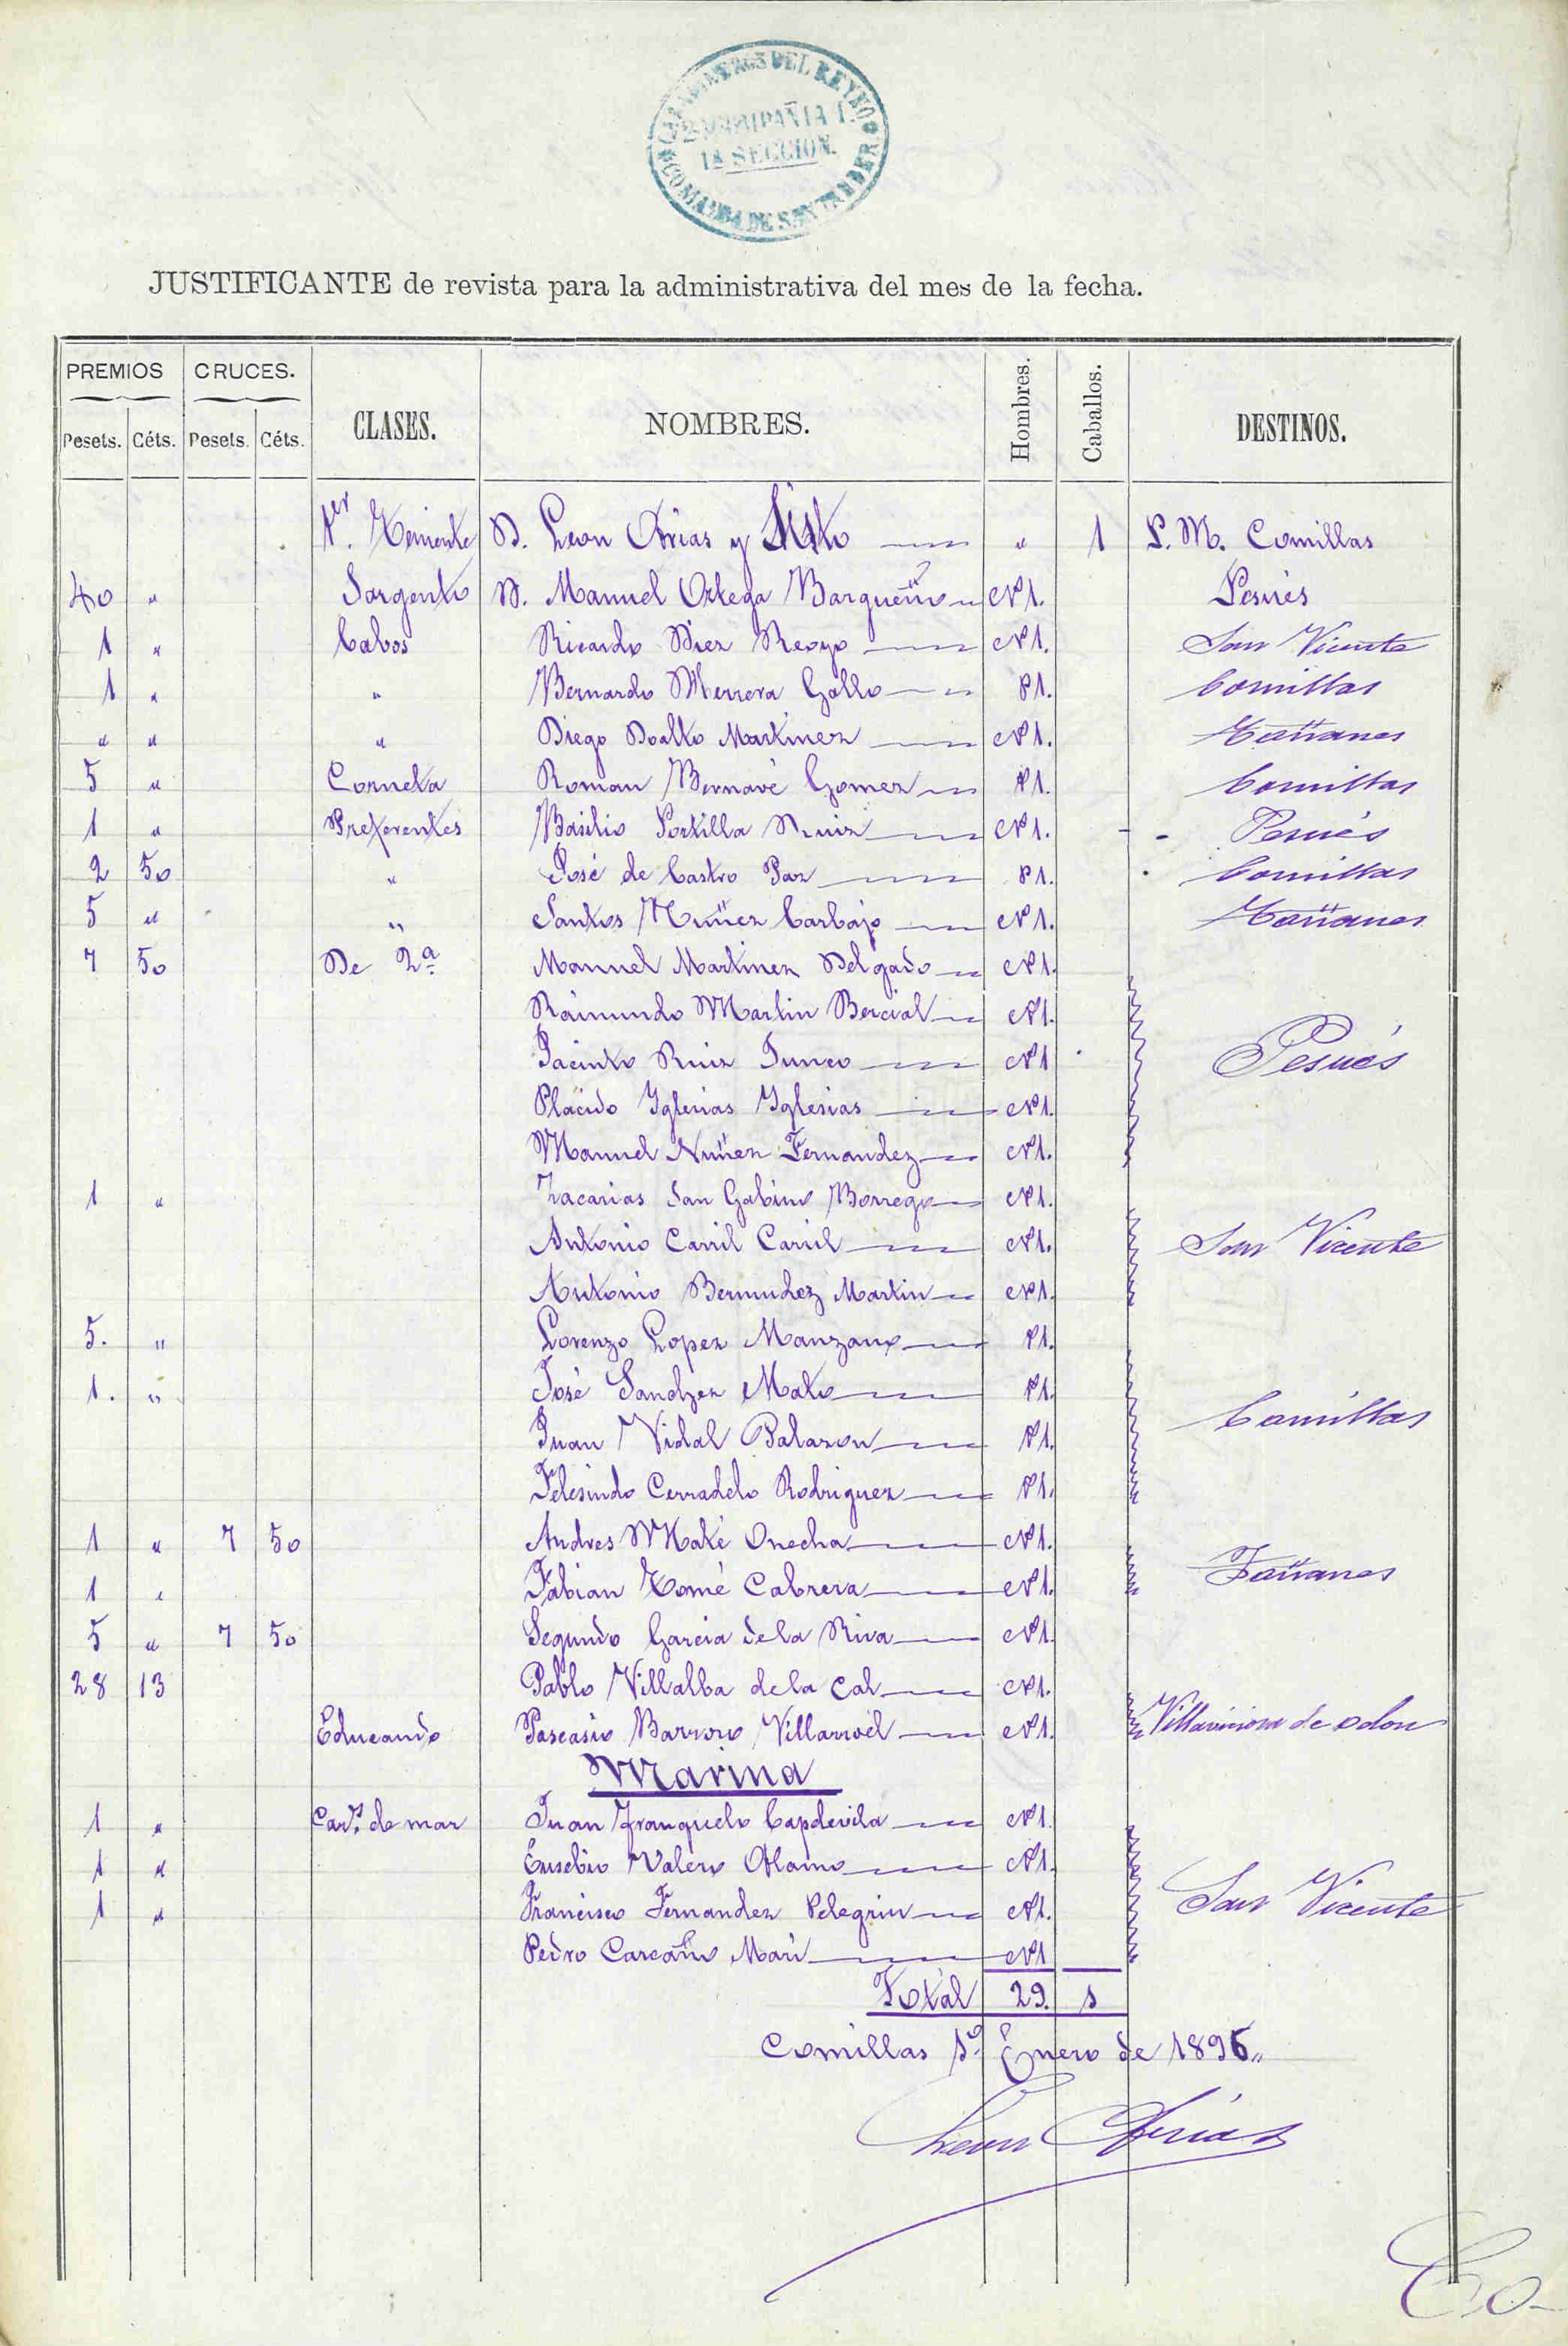 CARABINEROS DEL REYNO
COMPAÑIA
1ª SECCION.
COMANDA DE SANTANDER
JUSTIFICANTE de revista para la administrativa del mes de la fecha.
PREMIOS CRUCES. CLASES. NOMBRES. Hombres. Caballos. DESTINOS.
Pesets. Céts. Pesets. Céts.
1er. Teniente D. Leon Arias y Sisto " 1 P. M. Comillas
40 " Sargento D. Manuel Ortega Barqueño N1. Pesués
1 " Cabos Ricardo Diez Reoyo N1. San Vicente
1 " " Bernardo Herrera Gallo P1. Comillas
" " " Diego Doalto Martinez N1. Tañanes
5 " Corneta Roman Bernavé Gomez P1. Comillas
1 " Preferentes Basilio Portilla Ruiz N1. Pesués
2 50 " José de Castro Paz P1. Comillas
5 " " Santos Nuñez Carbajo N1. Tañanes
7 50 De 2ª Manuel Martinez Delgado N1.
Raimundo Martin Bercial N1.
Jacinto Ruiz Junco N1 Pesués
Plácido Yglesias Yglesias N1.
Manuel Nuñez Fernandez N1.
1 " Zacarias San Gabino Borrego N1.
Antonio Carril Carril N1. San Vicente
Antonio Bermudez Martin N1.
5. " Lorenzo Lopez Manzano P1.
1. " José Sanchez Mato P1.
Juan Vidal Balazon P1. Comillas
Felesindo Cerradelo Rodriguez P1.
1 " 7 50 Andres Maté Onecha N1.
1 " Fabian Tomé Cabrera N1. Tañanes
5 " 7 50 Segundo Garcia de la Riva N1.
28 13 Pablo Villalba de la Cal N1.
Educando Pascasio Barroso Villarroel N1. Villaviciosa de Odon
Marina
1 " Cars. de mar Juan Franquelo Capdevila N1.
1 " Eusebio Valero Alamo N1.
1 " Francisco Fernandez Pelegrin N1. San Vicente
Pedro Carcaño Mari N1
Total 29. 1
Comillas 1º Enero de 1896
Leon Arias
Co-